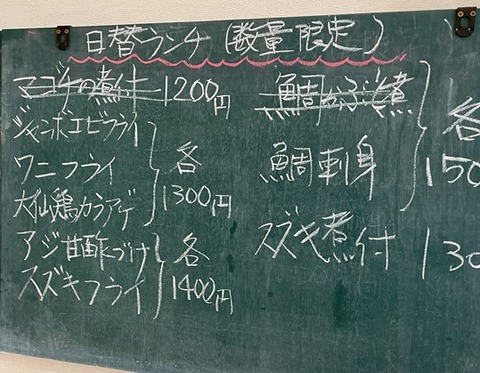 日替ランチ(数量限定)
マゴチの煮付 1200円
ジャンボエビフライ
ワニフライ
大山鶏カラアゲ
各
1300円
アジ甘酢づけ
スズキフライ
各
1400円
鯛かぶと煮
鯛刺身
各
150
スズキ煮付 130